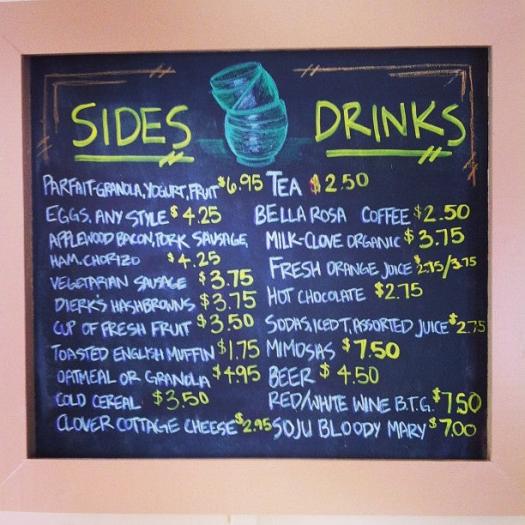 SIDES
PARFAIT-GRANOLA, YOGURT, FRUIT $6.95
EGGS, ANY STYLE $4.25
APPLEWOOD BACON, PORK SAUSAGE,
HAM, CHORIZO $4.25
VEGETARIAN SAUSAGE $3.75
DIERK'S HASHBROWNS $3.75
CUP OF FRESH FRUIT $3.50
TOASTED ENGLISH MUFFIN $1.75
OATMEAL OR GRANOLA $4.95
COLD CEREAL $3.50
CLOVER COTTAGE CHEESE $2.95
DRINKS
TEA $2.50
BELLA ROSA COFFEE $2.50
MILK-CLOVE ORGANIC $3.75
FRESH ORANGE JUICE $2.75/3.75
HOT CHOCOLATE $2.75
SODAS, ICED T, ASSORTED JUICE $2.75
MIMOSAS $7.50
BEER $4.50
RED/WHITE WINE B.T.G. $7.50
SOJU BLOODY MARY $7.00